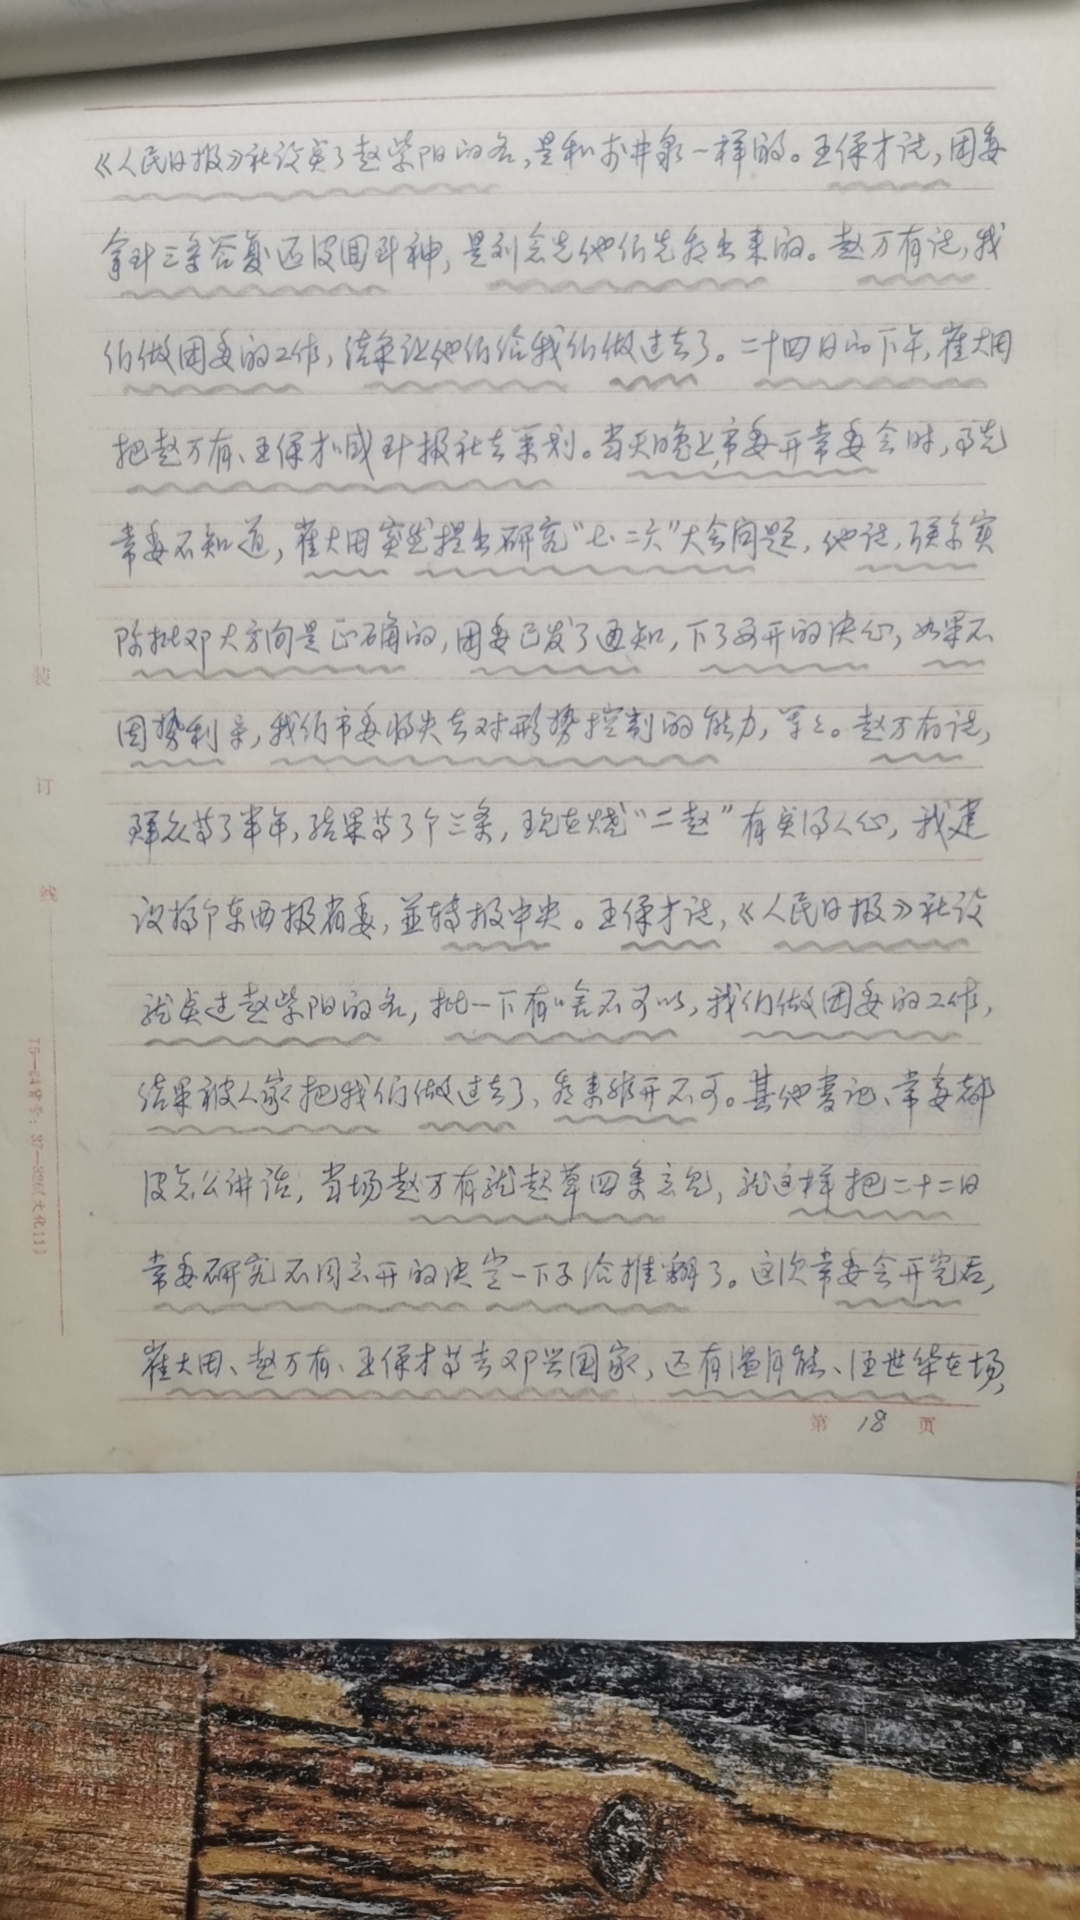 《人民日报》社论点了赵紫阳的名，是和李井泉一样的。王保才说，团委
拿到三条答复还没回到神，是刘念先他们先知出来的。赵万有说，我
们做团委的工作，结果让他们给我们做过去了。二十四日的下午，崔大田
把赵万有、王保才喊到报社去策划。当天晚上市委开常委会时，事先
常委不知道，崔大田突然提出研究“七·二六”大会问题，他说，
除批邓大方向是正确的，团委已发了通知，下了要开的决心，如果不
因势利导，我们市委将失去对形势控制的能力，等等。赵万有说，
群众等了半年，结果等了个三条，现在烧“二赵”有实得人心，我建
议搞个东西报省委，並转报中央。王保才说，《人民日报》社论
就点过赵紫阳的名，批一下有啥不可以，我们做团委的工作，
结果被人家把我们做过去了，看来非开不可。其他书记、常委都
没怎么讲话，当场赵万有就起草四条意见，就这样把二十二日
常委研究不同意开的决定一下子给推翻了。这次常委会开完后，
崔大田、赵万有、王保才等去邓兴国家，还有温月能、汪世华在场，
第 18 页
装
订
线